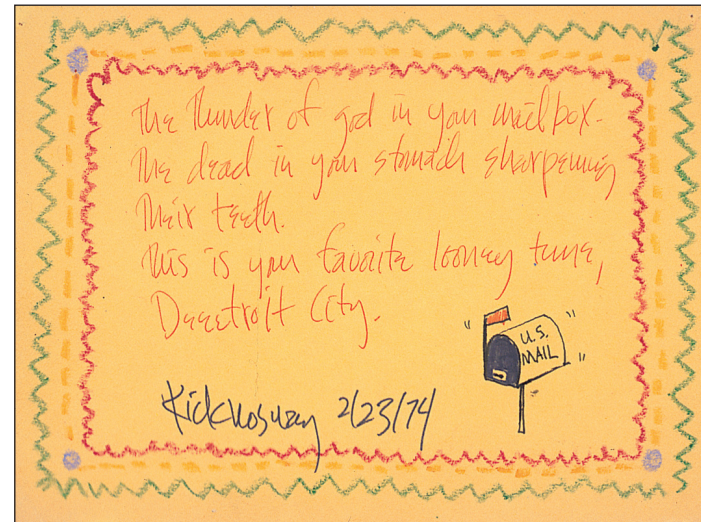 The thunder of god in your mailbox-
The dead in your stomach sharpening
their teeth.
This is your favorite looney tune,
Deeetroit City.
U.S.
MAIL
Kicknosway 2/23/74